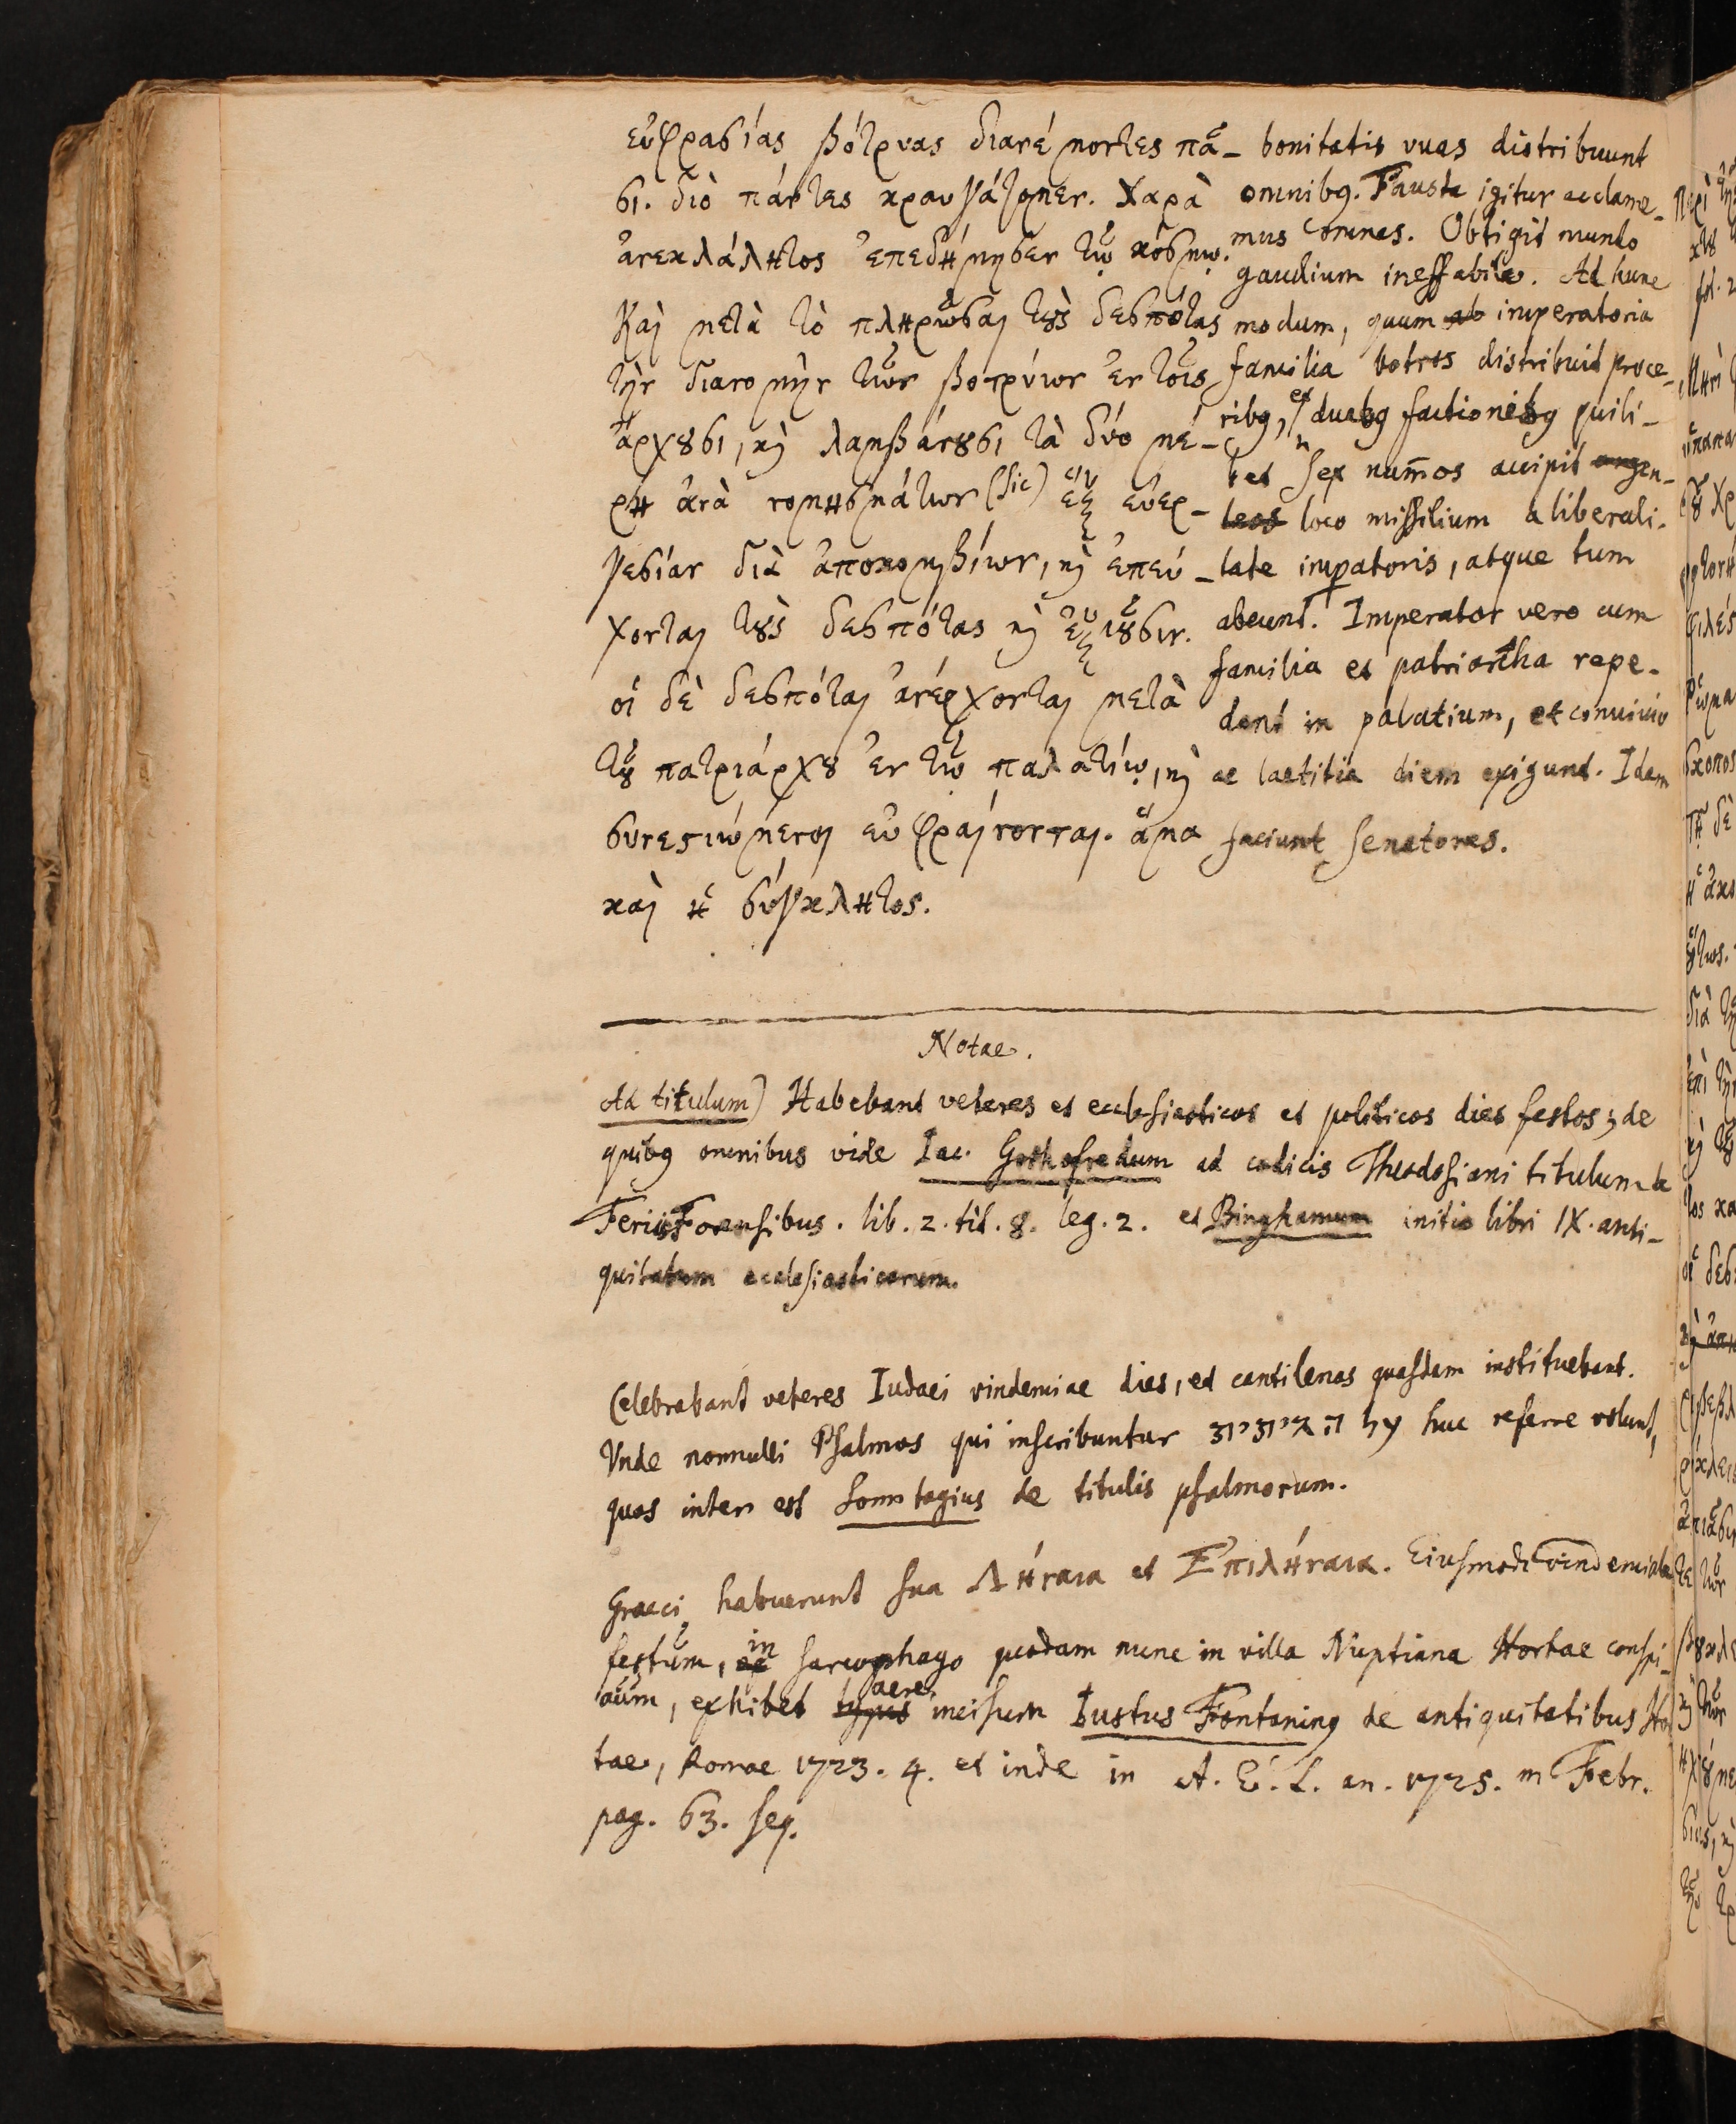 εὐφρασίας βότρυας διανέμοντες πᾶ-
σι. διὸ πάντες κραυγάζομεν. χαρὰ
ἀνεκλάλητος ἐπεδήμησεν τῷ κόσμῳ.
Καὶ μετὰ τὸ πληρῶσαι τοὺς δεσπότας
τὴν διανομὴν τῶν βοτρύων ἐν τοῖς
ἄρχουσι, καὶ λαμβάνουσι τὰ δύο μέ-
ρη ἀνὰ νομησμάτων (sic) ἓξ εὐερ-
γεσίαν διὰ ἀποκομβίων, καὶ ἐπεύ-
χονται τοὺς δεσπότας καὶ ἐξιοῦσιν.
οἱ δὲ δεσπόται ἀνέρχονται μετὰ
τοῦ πατριάρχου ἐν τῷ παλατίῳ, καὶ
συνεστιώμενοι εὐφραίνονται. ἅμα
καὶ ἡ σύγκλητος.
bonitatis vuas distribuunt
omnibq. Fausta igitur acclame-
mus omnes. Obtigit mundo
gaudium ineffabile. Ad hunc
modum, quum ab imperatoria
familia botros distribuit proce-
ribq, et duabq factionibq quili-
bet sex num̄os accipit argen-
teos loco missilium a liberali-
tate imp̱atoris, atque tum
abeunt. Imperator vero cum
familia et patriarcha repe-
dant in palatium, et convivio
ac laetitia diem exigunt. Idem
faciunt senatores.
Notae.
Ad titulum) Habebant veteres et ecclesiasticos et politicos dies festos; de
quibq omnibus vide Iac. Gothofredum ad codicis Theodosiani titulum de
Feriis Forensibus. lib. 2. tit. 8. leg. 2. et Binghamum initio libri IX. anti-
quitatum ecclesiasticarum.
Celebrabant veteres Iudaei vindemiae dies, et cantilenas quasdam instituebant.
Vnde nonnulli Psalmos qui inscribuntur על הגיתית huc referre volunt,
quos inter est Sonntagius de titulis psalmorum.
Graeci habuerunt sua Λήναια et Ἐπιλήναια. Eiusmodi vindemiale
festum, ex in sarcophago quodam nunc in villa Nuptiana Hortae conspi-
cuum, exhibet typis aere incisum Iustus Fontaninq de antiquitatibus Hor
tae, Romae 1723. 4. et inde in A. E. L. an. 1725. m Febr.
pag. 63. seq.